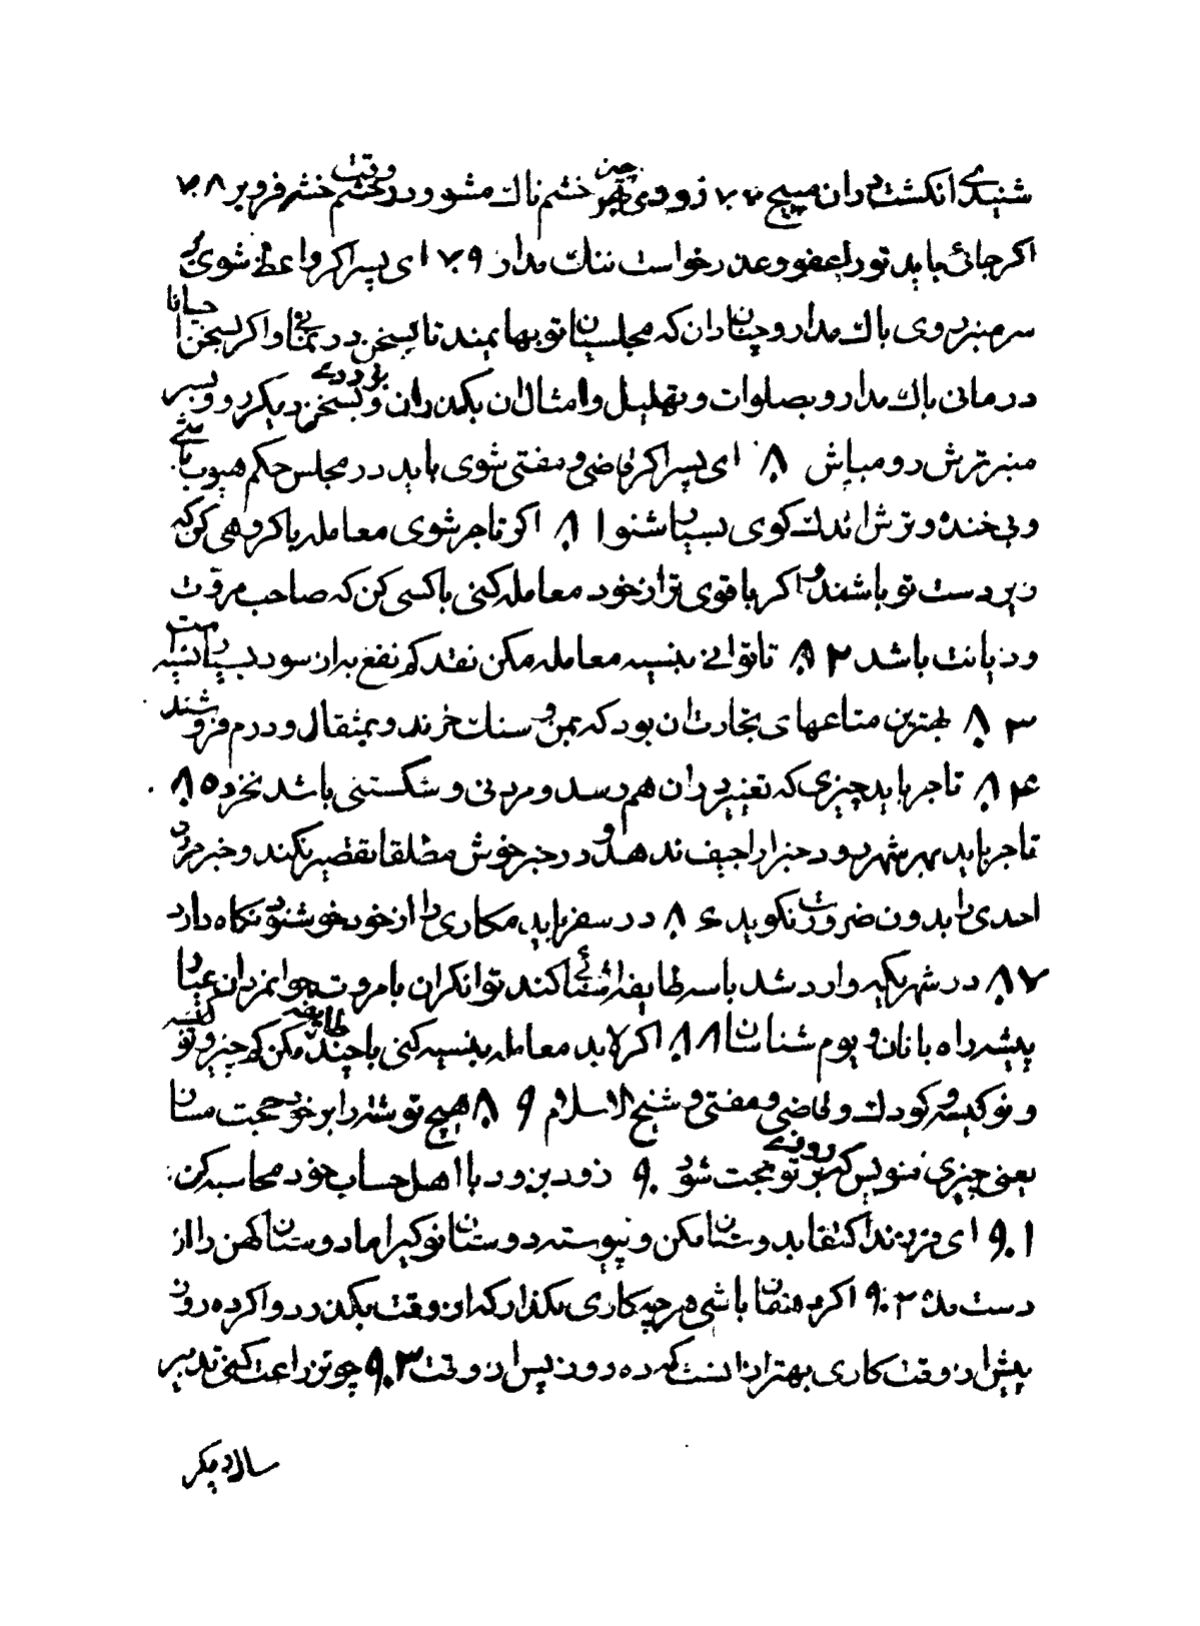 شنیدی انکشت دران مپیچ ۷۷ زود بهر چیز خشم ناك مشو و در وقت خشم خشم فرو بر ۷۸
اکر جائی باید تو را عفو و عذر خواست ننك مدار ۷۹ ای پسر اکر واعظ شوی بر
سر منبر روی باك مدار و چنان دان که مجلسیان تو بهایمند تا بسخن در نمانی و اکر بسخن احیانا
در مانی باك مدار و بصلوات و تهلیل و امثال ان بکذران و بسخن دیکر رو و بر سر
منبر ترش رو مباش ۸۰ ای پسر اکر قاضی و مفتی شوی باید در مجلس حکم هیوب باشی
و بی خنده و ترش اندك کوی بسیار شنو ۸۱ اکر تاجر شوی معامله با کروهی کن که
زیر دست تو باشند و اکر با قوی تر از خود معامله کنی با کسی کن که صاحب مروت
و دیانت باشد ۸۲ تا توانی بنسیه معامله مکن نقد کم نفع به از سود بسیار نسیه است
۸۳ بهترین متاعهای تجارت ان بود که بمن و سنك خرند و بمثقال و درم فروشند
۸۴ تاجر باید چیزی که تغییر دران هم رسد و مردنی و شکستنی باشد نخرد ۸۵
تاجر باید بهر شهر رود خبر اراجیف ندهد و در خبر خوش مطلقا تقصیر نکند و خبر مرك
احدی را بدون ضرورت نکوید ۸۶ در سفر باید مکاری را از خود خوشنود نکاه دارد
۸۷ در شهری که وارد شد با سه طایفه اشنائی کند توانکران با مروت جوانمردان عیار
پیشه راه بانان و بوم شناسان ۸۸ اکر لابد معامله بنسیه کنی با چند طایفه مکن کم چیز و نو کیسه
و نو کیسه و کودك و قاضی و مفتی و شیخ الاسلام ۸۹ هیچ نوشته را بر خود حجت مستان
یعنی چیزی منویس که بر تو روزی حجت شود ۹۰ زود بزود با اهل حساب خود محاسبه کن
۹۱ ای فرزند اکتفا بدوستان مکن و پیوسته دوستان نو کیر اما دوستان کهن را از
دست مده ۹۲ اکر دهقان باشی هر چه کاری مکذار که از وقت بکذرد و اکر ده روز
پیش از وقت کاری بهتر از انست که ده روز پس از وقت ۹۳ چون زراعت کنی تدبیر
سال دیکر